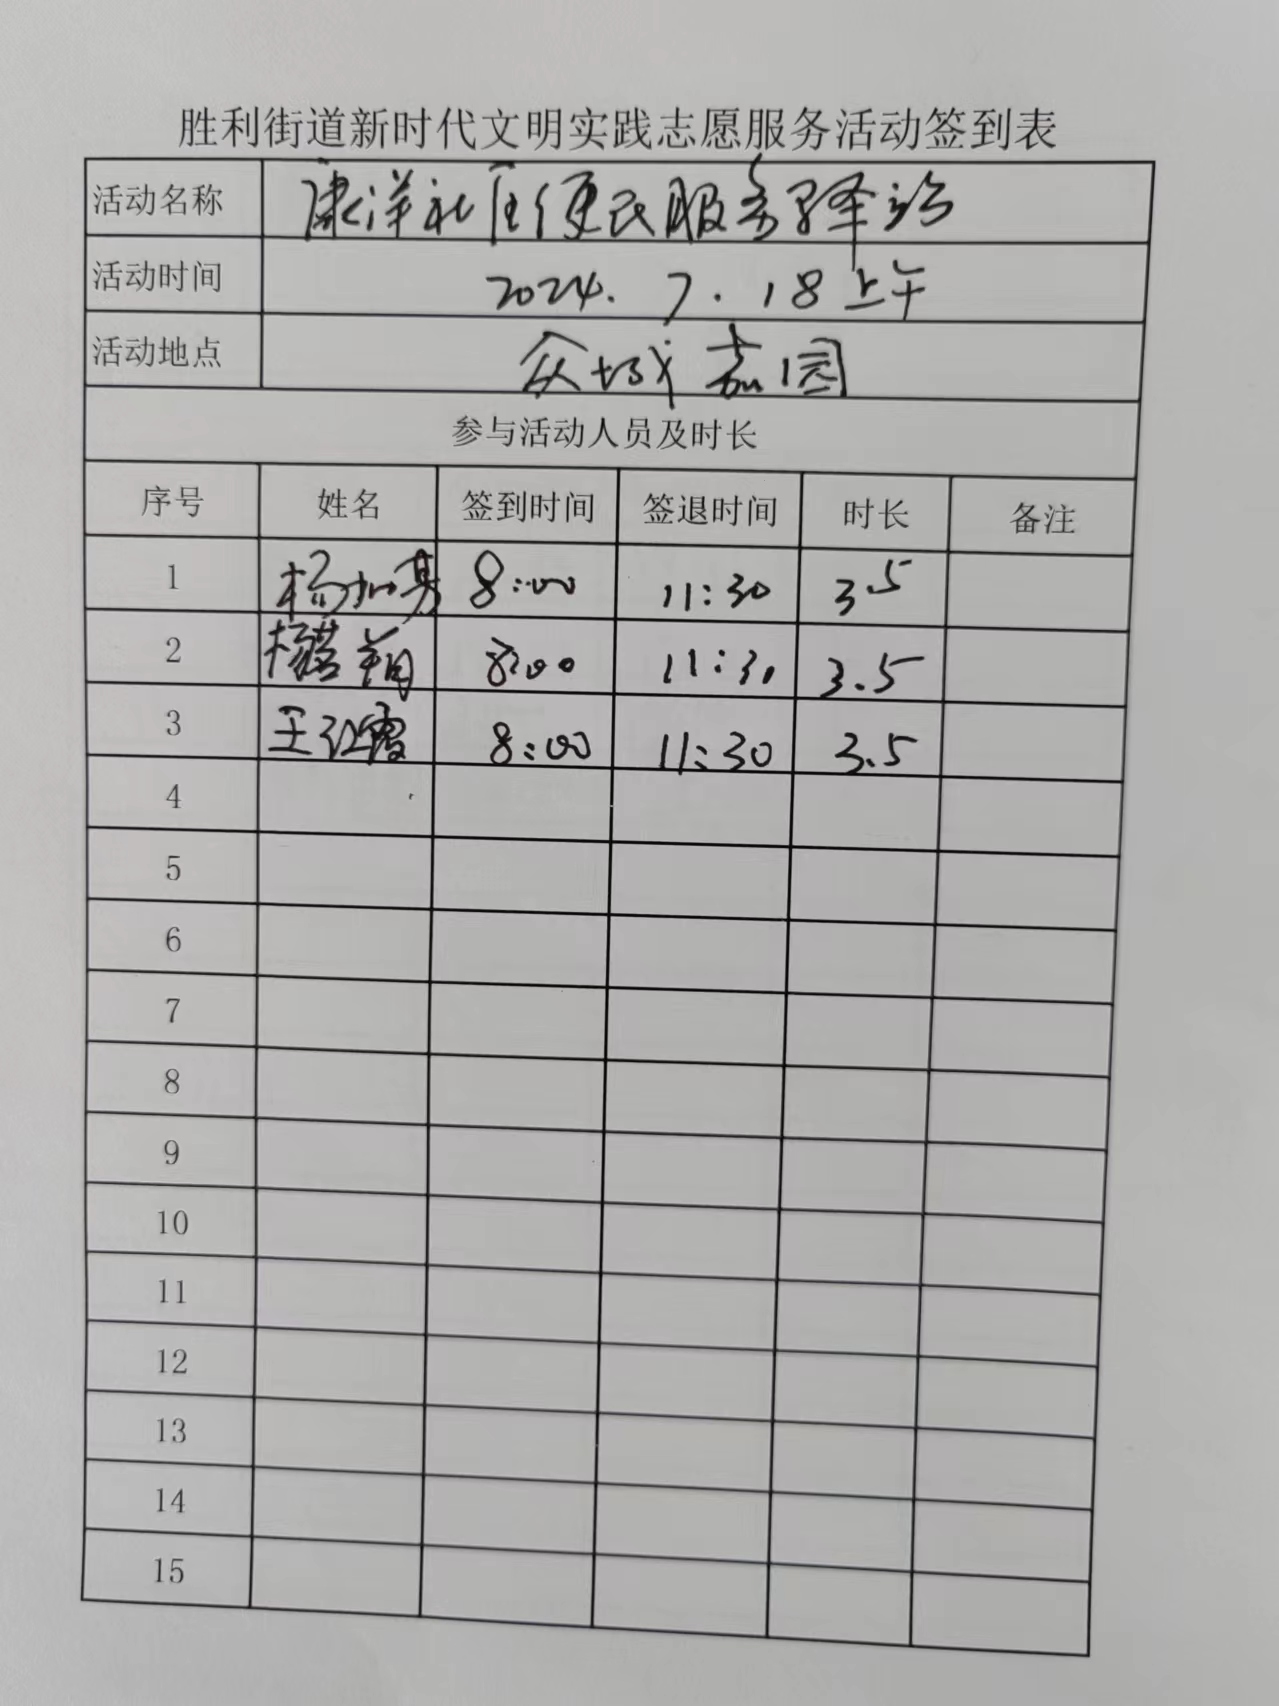 胜利街道新时代文明实践志愿服务活动签到表
活动名称 康洋社区便民服务驿站
活动时间 2024.7.18上午
活动地点 众城嘉园
参与活动人员及时长
序号 姓名 签到时间 签退时间 时长 备注
1 杨 8:00 11:30 3.5
2 杨 翔 8:00 11:30 3.5
3 王红霞 8:00 11:30 3.5
4
5
6
7
8
9
10
11
12
13
14
15